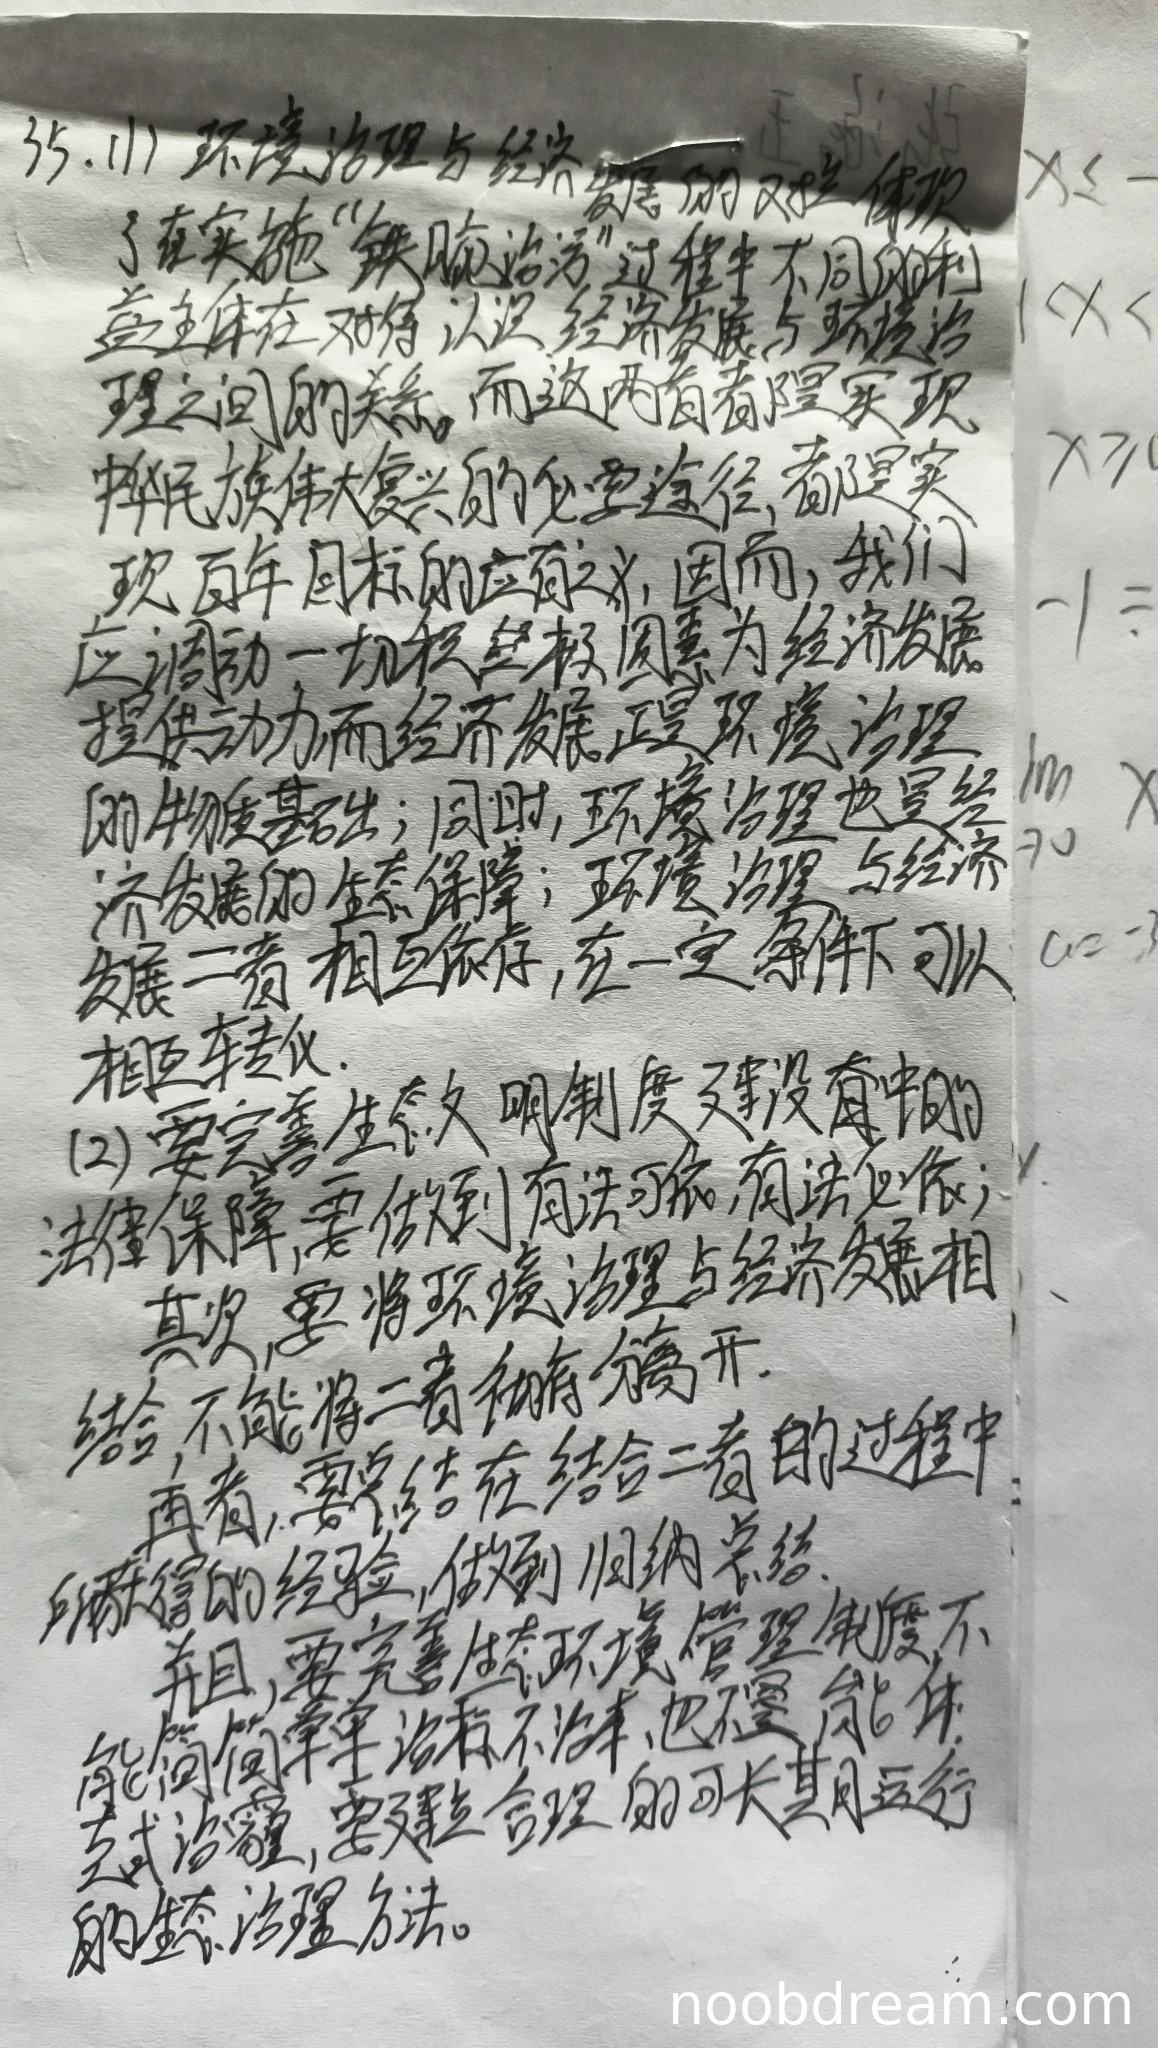 35.(1) 环境治理与经济发展的对立体现
了在实施“铁腕治污”过程中不同的利
益主体在对待认识经济发展与环境治
理之间的关系。而这两者都是实现
中华民族伟大复兴的必要途径,都是实
现百年目标的应有之义,因而,我们
应调动一切积极因素为经济发展
提供动力,而经济发展正是环境治理
的物质基础;同时,环境治理也是经
济发展的生态保障;环境治理与经济
发展二者相互依存,在一定条件下可以
相互转化.
(2)要完善生态文明制度建设中的
法律保障,要做到有法可依,有法必依;
其次,要将环境治理与经济发展相
结合,不能将二者分离开.
再者,要总结在结合二者的过程中
所获得的经验,做到归纳总结.
并且,要完善生态环境管理制度,不
能简简单单治标不治本,也不能休
克式治霾,要建立合理的可长期运行
的生态治理方法。
x≤ -
1<x<
x≥
-1=
lim x
→0
a=-3
noobdream.com